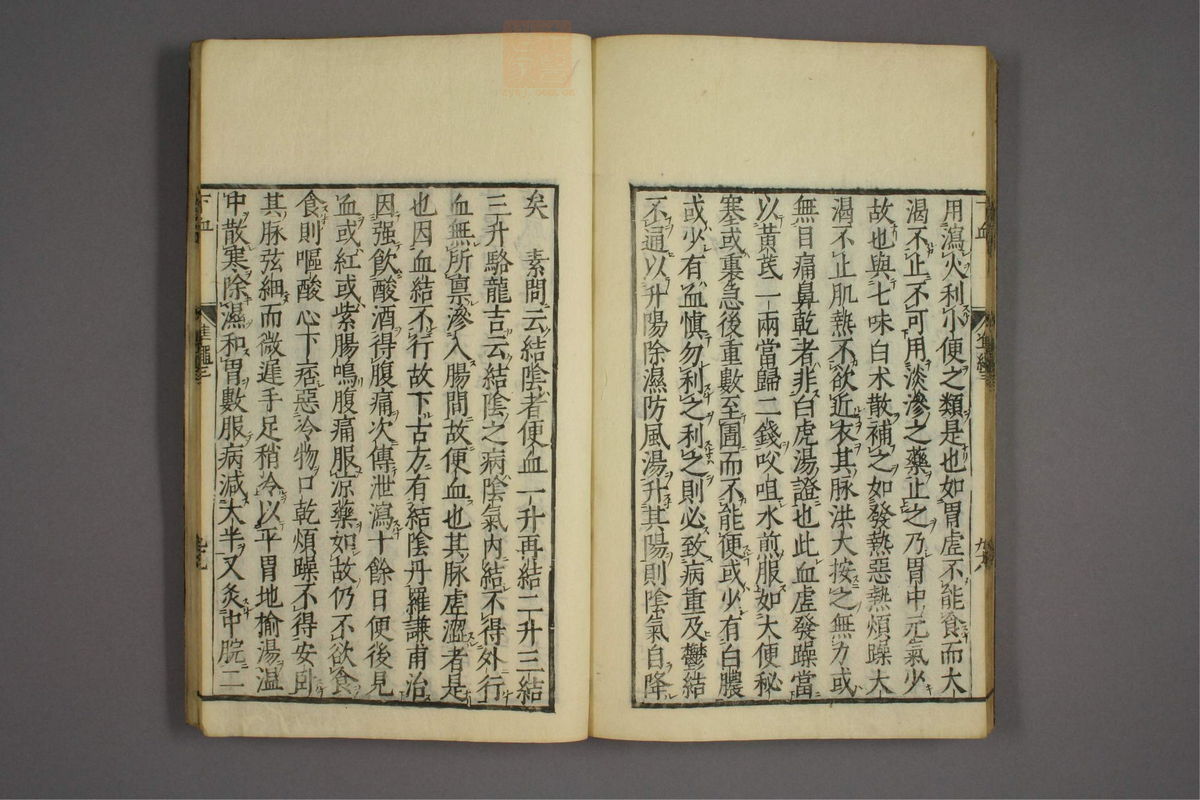 用瀉火利小便之類是也如胃虛不能食而大
渴不止不可用淡滲之藥止之乃胃中元氣少
故也與七味白朮散補之如發熱惡熱煩躁大
渴不止肌熱不欲近衣其脉洪大按之無力或
無目痛鼻乾者非白虎湯證也此血虛發躁當
以黃芪一兩當歸二錢㕮咀水煎服如大便秘
塞或裏急後重數至圊而不能便或少有白膿
或少有血慎勿利之利之則必致病重及鬱結
不通以升陽除濕防風湯升其陽則陰氣自降
矣　素問云結陰者便血一升再結二升三結
三升駱龍吉云結陰之病陰氣內結不得外行
血無所稟滲入腸間故便血也其脉虛澀者是
也因血結不行故下古方有結陰丹羅謙甫治
因强飲酸酒得腹痛次傳泄瀉十餘日便後見
血或紅或紫腸鳴腹痛服凉藥如故仍不欲食
食則嘔酸心下痞惡冷物口乾煩躁不得安卧
其脉弦細而微遲手足稍冷以平胃地榆湯温
中散寒除濕和胃數服病減大半又灸中脘二
下血
準繩三